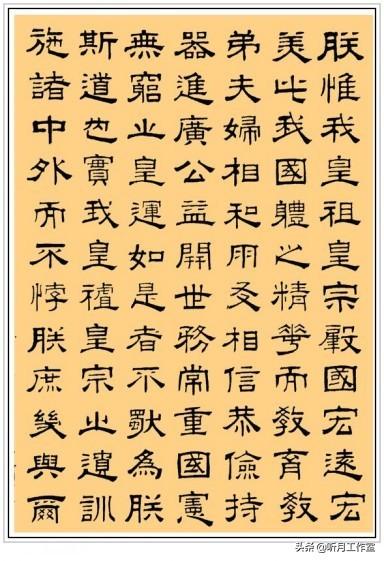 朕惟我皇祖皇宗肇國宏遠宏
美此我國體之精華而教育教
弟夫婦相和朋友相信恭儉持
器進廣公益開世務常重國憲
無窮之皇運如是者不獨為朕
斯道也實我皇祖皇宗之遺訓
施諸中外而不悖朕庶幾與爾
头条 @听月工作室